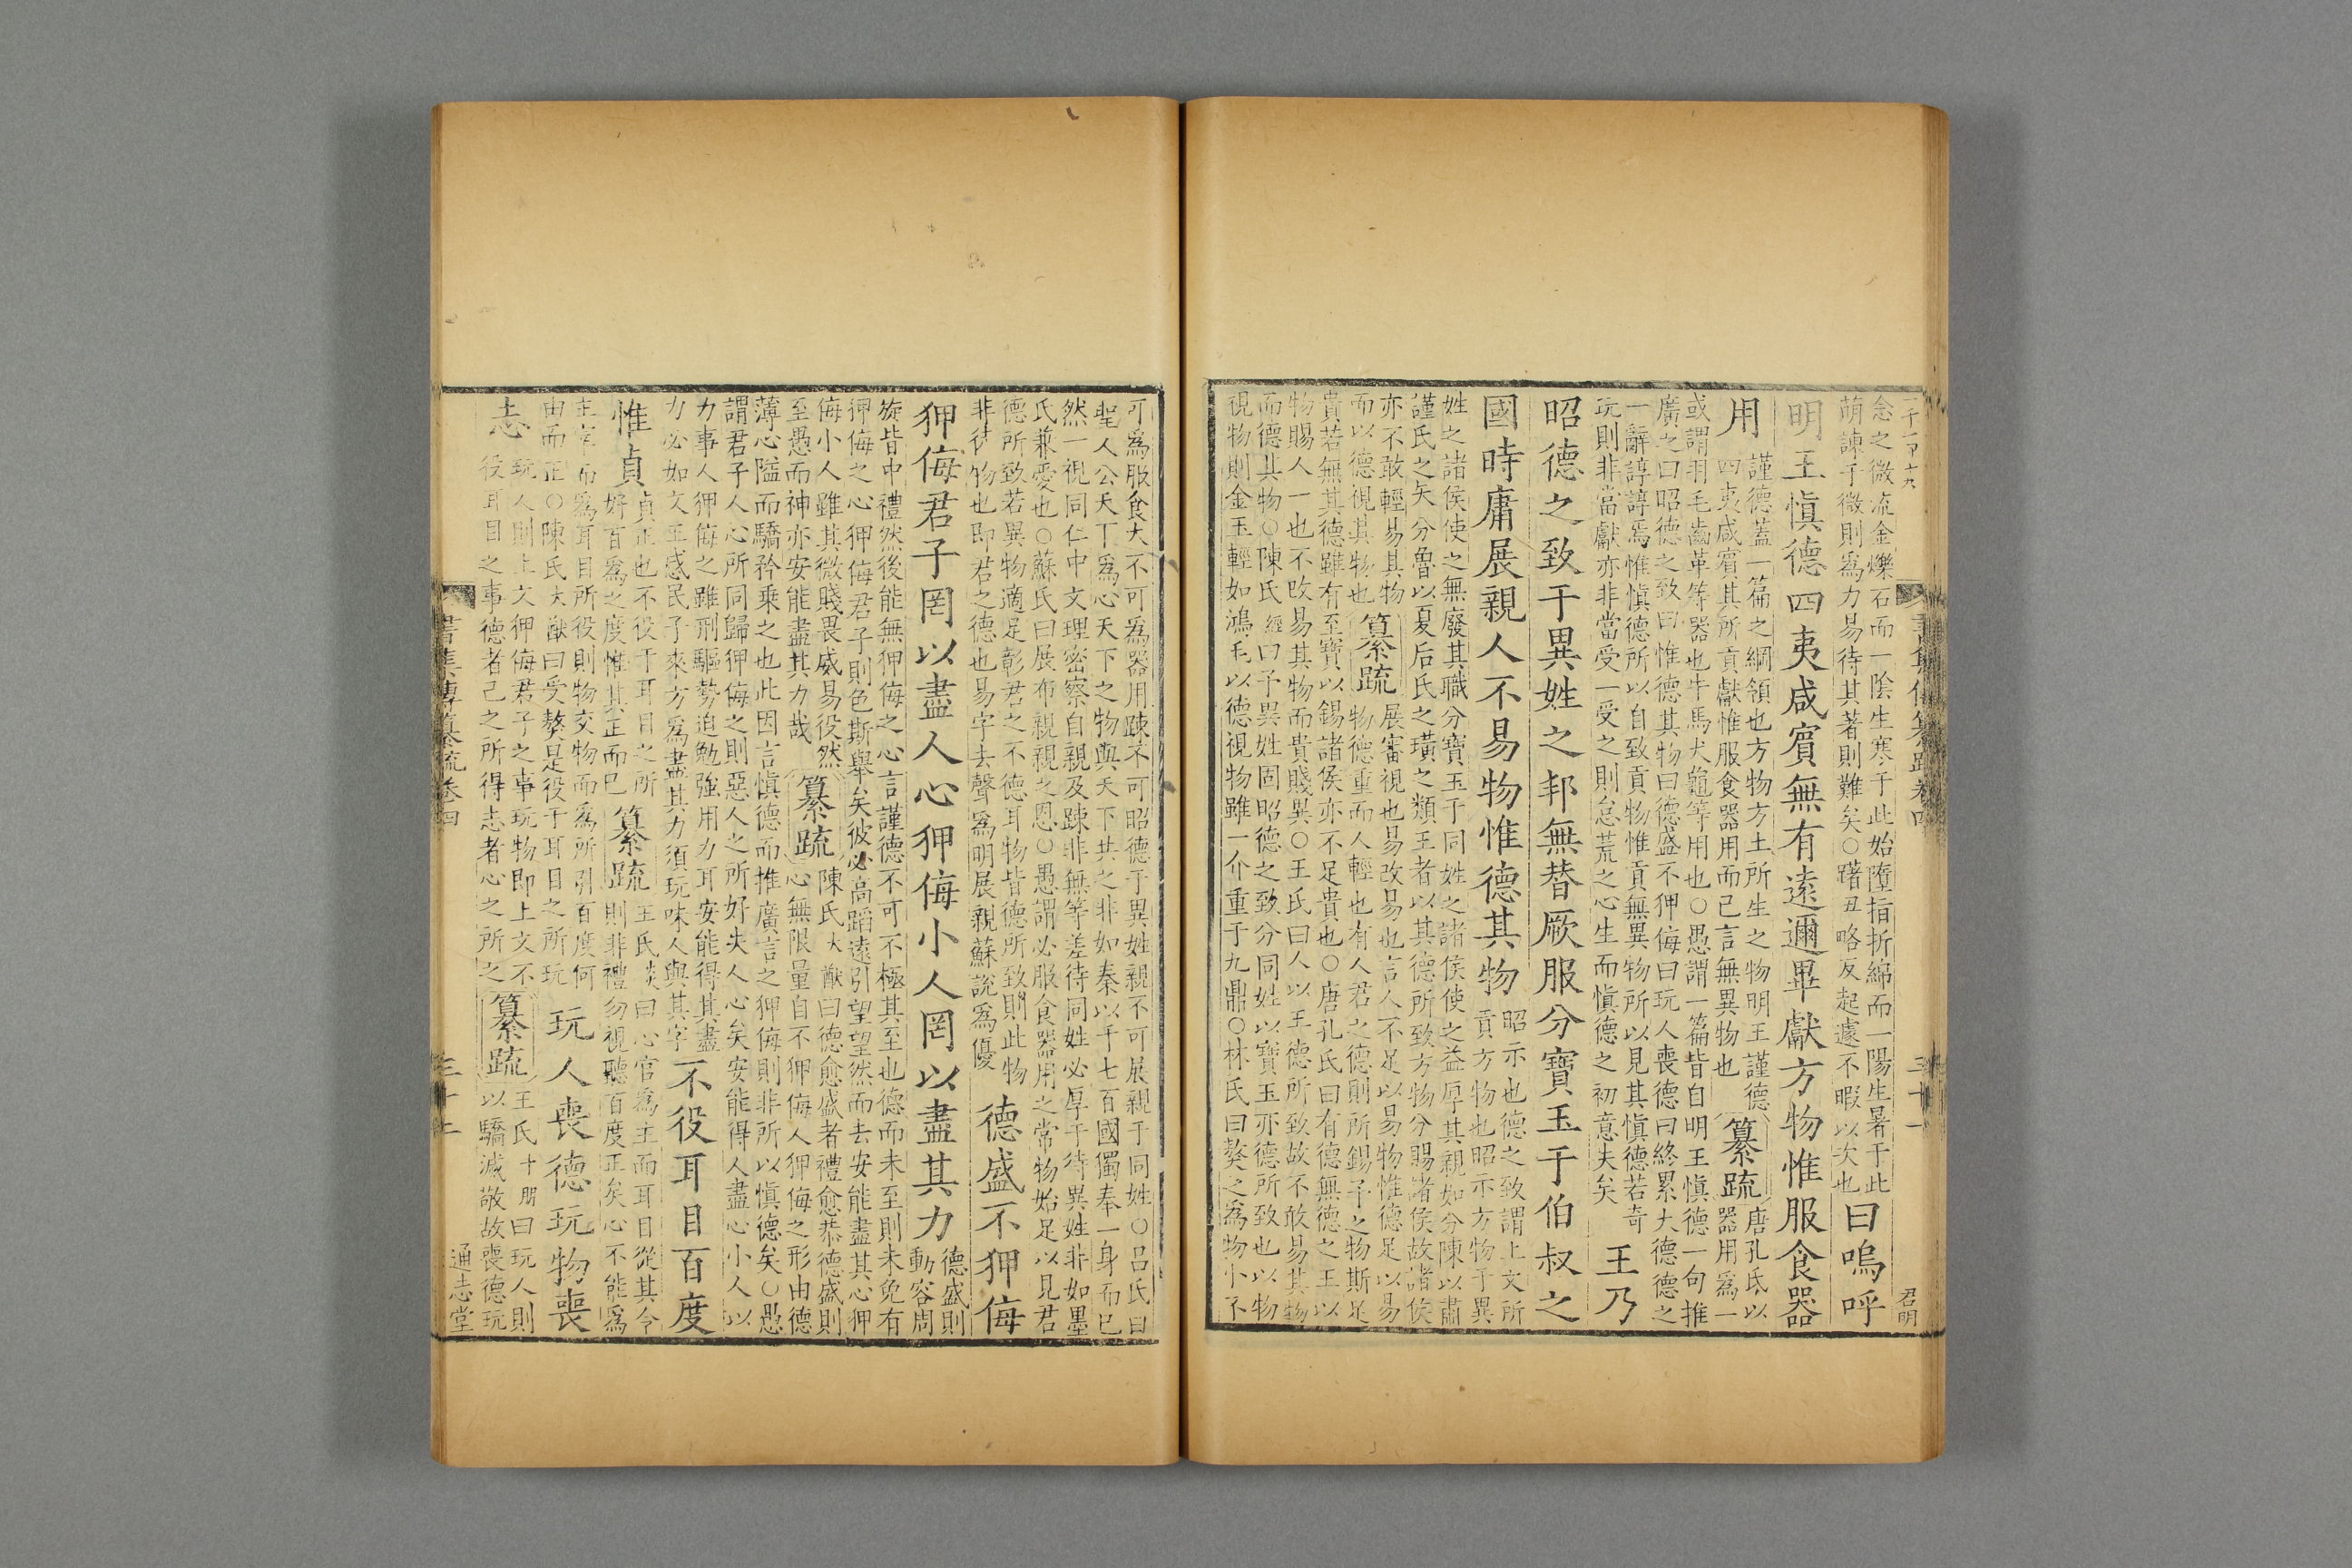 念之微流金爍石而一陰生寒于此始墮指折綿而一陽生暑于此
萌諫于微則爲力易待其著則難矣○躇丑略反起遽不暇以次也
曰嗚呼
明王慎德四夷咸賓無有遠邇畢獻方物惟服食器
用
謹德蓋一篇之綱領也方物方土所生之物明王謹德
四夷咸賓其所貢獻惟服食器用而已言無異物也
纂疏
唐孔氏以
器用爲一
或謂羽毛齒革等器也牛馬犬龜等用也○愚謂一篇皆自明王慎德一句推
廣之曰昭德之致曰惟德其物曰德盛不狎侮曰玩人喪德曰終累大德德之
一辭諄諄焉惟慎德所以自致貢物惟貢無異物所以見其慎德若奇
玩則非當獻亦非當受一受之則怠荒之心生而慎德之初意失矣
王乃
昭德之致于異姓之邦無替厥服分寶玉于伯叔之
國時庸展親人不易物惟德其物
昭示也德之致謂上文所
貢方物也昭示方物于異
姓之諸侯使之無廢其職分寶玉于同姓之諸侯使之益厚其親如分陳以肅
謹氏之矢分魯以夏后氏之璜之類王者以其德所致方物分賜諸侯故諸侯
亦不敢輕易其物
而以德視其物也
纂疏
展審視也易改易也言人不足以易物惟德足以易
物德重而人輕也有人君之德則所錫予之物斯足
貴若無其德雖有至寶以錫諸侯亦不足貴也○唐孔氏曰有德無德之王以
物賜人一也不改易其物而貴賤異○王氏曰人以王德所致故不敢易其物
而德其物○陳氏經曰于異姓固昭德之致分同姓以寶玉亦德所致也以物
視物則金玉輕如鴻毛以德視物雖一介重于九鼎○林氏曰獒之爲物小不
君明
三十一
可爲服食大不可爲器用踈不可昭德于異姓親不可展親于同姓○呂氏曰
聖人公天下爲心天下之物與天下共之非如秦以千七百國獨奉一身而已
然一視同仁中文理密察自親及踈非無等差待同姓必厚于待異姓非如墨
氏兼愛也○蘇氏曰展布親親之恩○愚謂必服食器用之常物始足以見君
德所致若異物適足彰君之不德耳物皆德所致則此物
非徒物也即君之德也易字去聲爲明展親蘇說爲優
德盛不狎侮
狎侮君子罔以盡人心狎侮小人罔以盡其力
德盛則
動容周
旋皆中禮然後能無狎侮之心言謹德不可不極其至也德而未至則未免有
狎侮之心狎侮君子則色斯舉矣彼必高蹈遠引望望然而去安能盡其心狎
侮小人雖其微賤畏威易役然
至愚而神亦安能盡其力哉
纂疏
陳氏大猷曰德愈盛者禮愈恭德盛則
心無限量自不狎侮人狎侮之形由德
薄心隘而驕矜乘之也此因言慎德而推廣言之狎侮則非所以慎德矣○愚
謂君子人心所同歸狎侮之則惡人之所好失人心矣安能得人盡心小人以
力事人狎侮之雖刑驅勢迫勉強用力耳安能得其盡
力必如文王感民子來方爲盡其力須玩味人與其字
不役耳目百度
惟貞
貞正也不役于耳目之所
好百爲之度惟其正而已
纂疏
王氏炎曰心官爲主而耳目從其令
則非禮勿視聽百度正矣心不能爲
主宰而爲耳目所役則物交物而爲所引百度何
由而正○陳氏大猷曰受獒是役于耳目之所玩
玩人喪德玩物喪
志
玩人則上文狎侮君子之事玩物即上文不
役耳目之事德者己之所得志者心之所之
纂疏
王氏十朋曰玩人則
以驕滅敬故喪德玩
書集傳纂疏卷四
通志堂